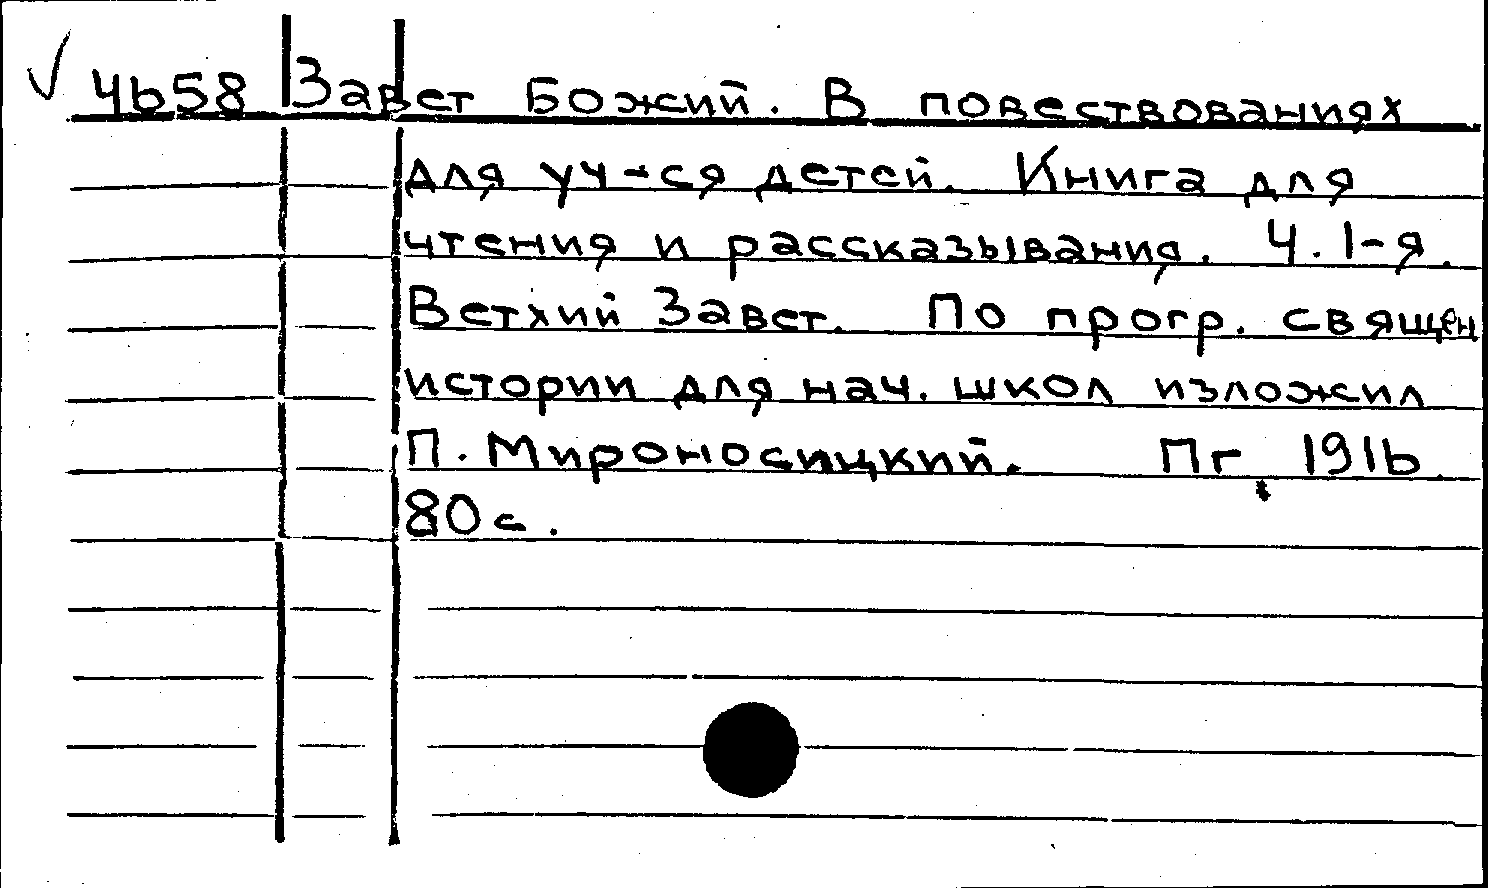 √ 4658 Завет Божий. В повествованиях
для уч-ся детей. Книга для
чтения и рассказывания. Ч. 1-я.
Ветхий Завет. По прогр. священ
истории для нач. школ изложил
П. Мироносицкий. Пг, 1916.
80 с.